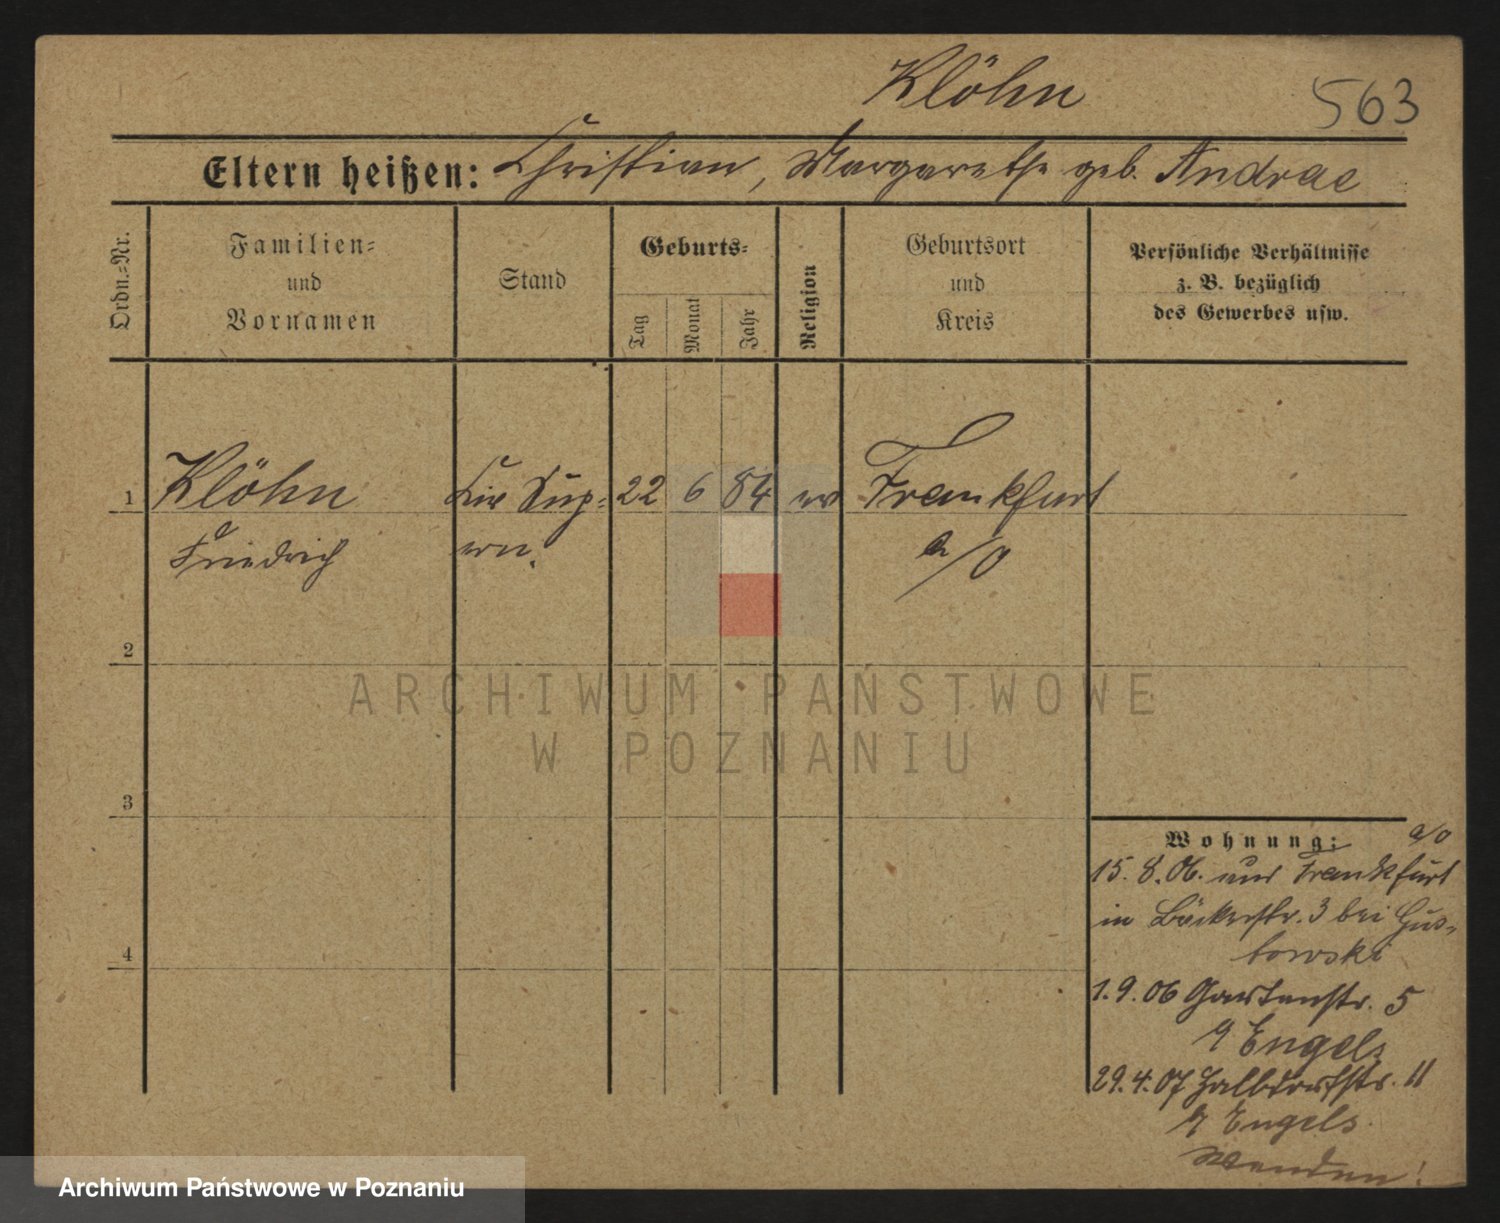 Klöhn
563
Eltern heißen: Christian, Margarethe geb. Andrae
Ordn.-Nr.
Familien-
und
Vornamen
Stand
Geburts-
Tag
Monat
Jahr
Religion
Geburtsort
und
Kreis
Persönliche Verhältnisse
z. B. bezüglich
des Gewerbes usw.
1 Klöhn 22 6 84 ev Frankfurt
Friedrich a/O
2
ARCHIWUM PAŃSTWOWE
W POZNANIU
3
Wohnung:
a/O
15. 8. 06. aus Frankfurt
in Bäckerstr. 3 bei Gus-
towski
1. 9. 06 Gartenstr. 5
Engels
4
29. 4. 07 Halbdorfstr. 11
Engels
Wenden!
Archiwum Państwowe w Poznaniu